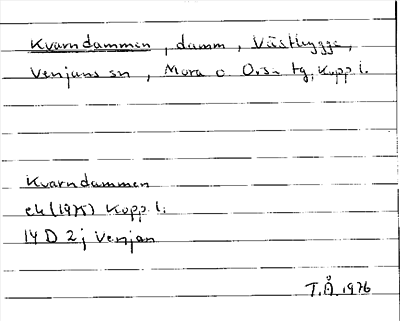 Kvarndammen, damm, Västbygge,
Venjans sn, Mora o. Orsa tg, Kopp. l.
Kvarndammen
ek (1975) Kopp. l.
14 D 2 j Venjan
T.Å. 1976